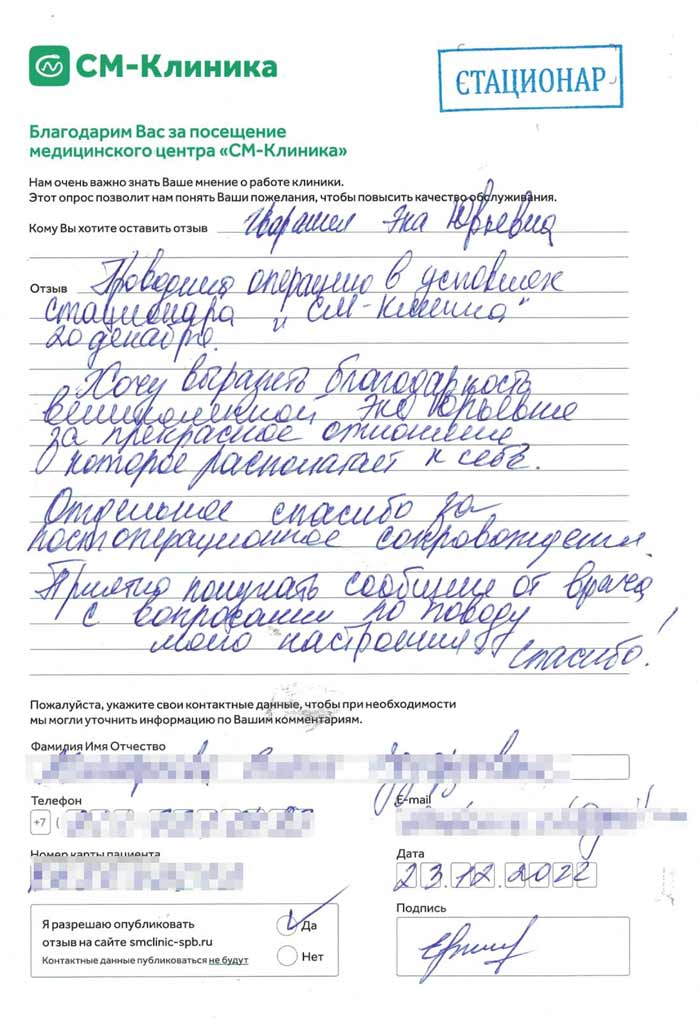 СМ-Клиника
СТАЦИОНАР
Благодарим Вас за посещение
медицинского центра «СМ-Клиника»
Нам очень важно знать Ваше мнение о работе клиники.
Этот опрос позволит нам понять Ваши пожелания, чтобы повысить качество обслуживания.
Кому Вы хотите оставить отзыв Эка Юрьевна
Отзыв Проводили операцию в условиях
стационара "СМ-клиника"
20 декабря.
Хочу выразить благодарность
великолепной Эке Юрьевне
за прекрасное отношение
которое располагает к себе.
Отдельное спасибо за
постоперационное сопровождение.
Приятно получать сообщения от врача
с вопросами по поводу
моего настроения
Спасибо!
Пожалуйста, укажите свои контактные данные, чтобы при необходимости
мы могли уточнить информацию по Вашим комментариям.
Фамилия Имя Отчество
Телефон
E-mail
+7 (
Номер карты пациента
Дата
23.12.2022
Подпись
Я разрешаю опубликовать
отзыв на сайте smclinic-spb.ru
Контактные данные публиковаться не будут
Да
Нет